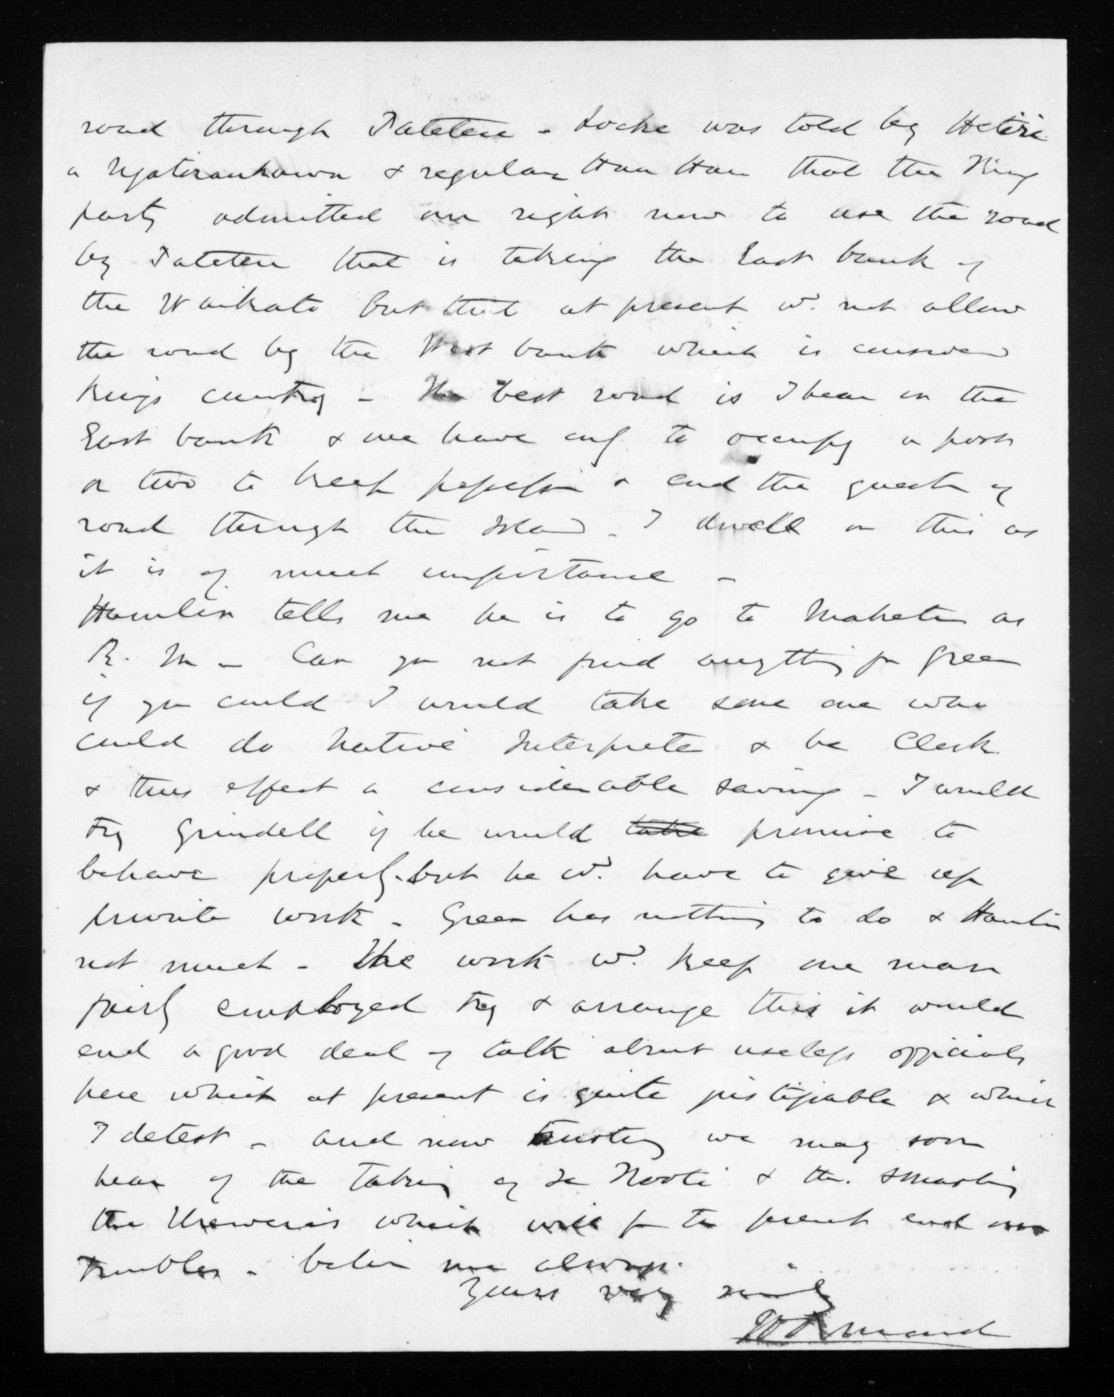 road through Patetere - Locke was told by Hetiri
a Ngatiraukawa & regular Hau Hau that the King
party admitted our right now to use the road
by Patetere that is taking the East bank of
the Waikato but that at present wd. not allow
the road by the West bank which is considered
Kings country - The best road is I hear on the
East bank & we have only to occupy a post
or two to keep possession & end the question of
road through the Island - I dwell on this as
it is of much importance -
Hamlin tells me he is to go to Maketu as
R. M - Can you not find anything for Green
if you could I would take some one who
could do Native Interpreter & be Clerk
& thus effect a considerable saving - I would
try Grindell if he would take promise to
behave properly. but he wd. have to give up
private work - Green has nothing to do & Hamlin
not much - The work wd. keep one man
fairly employed try & arrange this it would
end a good deal of talk about useless officials
here which at present is quite justifiable & which
I detest - and now trusting we may soon
hear of the taking of Te Kooti & the smashing
the Urewera's which will for the present end our
troubles - believe me always.
Yours very sincly
JD Ormond